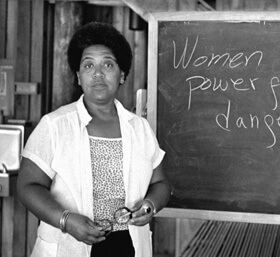 Women
power
dang